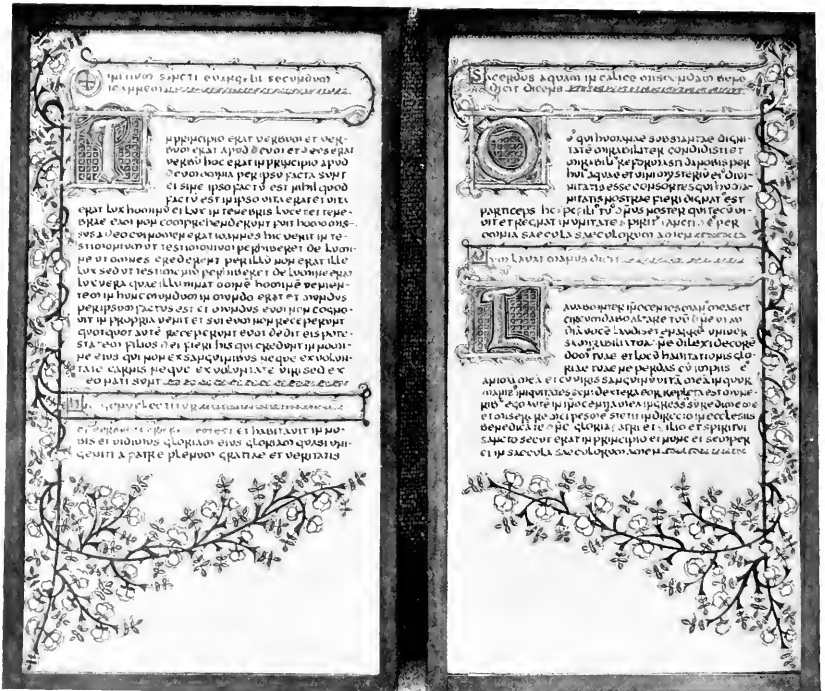 INITIVM SANCTI EVANGELII SECUNDVM
IOANNEM
IN PRINCIPIO ERAT VERBVM ET VER-
BVM ERAT APVD DEVM ET DEVS ERAT
VERBV HOC ERAT IN PRINCIPIO APVD
DEVM OMNIA PER IPSV FACTA SVNT
ET SINE IPSO FACTV EST NIHIL QVOD
FACTV EST IN IPSO VITA ERAT ET VITA
ERAT LVX HOMINV ET LVX IN TENEBRIS LVCET ET TENE-
BRAE EAM NON COMPREHENDERVNT FVIT HOMO MIS-
SVS A DEO CVI NOMEN ERAT IOANNES HIC VENIT IN TE-
STIMONIVM VT TESTIMONIVM PERHIBERET DE LVMI-
NE VT OMNES CREDERENT PER ILLV NON ERAT ILLE
LVX SED VT TESTIMONIV PERHIBERET DE LVMINE ERAT
LVX VERA QVAE ILLVMINAT OMNE HOMINE VENIEN-
TEM IN HVNC MVNDVM IN MVNDO ERAT ET MVNDVS
PER IPSVM FACTVS EST ET MVNDVS EVM NON COGNO-
VIT IN PROPRIA VENIT ET SVI EVM NON RECEPERVNT
QVOTQVOT AVTE RECEPERVNT EVM DEDIT EIS POTE-
STATEM FILIOS DEI FIERI HIS QVI CREDVNT IN NOMI-
NE EIVS QVI NON EX SANGVINIBVS NEQVE EX VOLVN-
TATE CARNIS NEQVE EX VOLVNTATE VIRI SED EX
EO NATI SVNT
GENVFLECTITVR
ET VERBVM EST ET HABITAVIT IN NO-
BIS ET VIDIMVS GLORIAM EIVS GLORIAM QVASI VNI-
GENITI A PATRE PLENVM GRATIAE ET VERITATIS
SACERDOS AQVAM IN CALICE MISCENDAM BENE-
DICIT DICENS
O QVI HVMANAE SVBSTANTIAE DIGNI-
TATE MIRABILITER CONDIDISTI ET
MIRABILI REFORMASTI DA NOBIS PER
HVI AQVAE ET VINI MYSTERIV EI DIVI-
NITATIS ESSE CONSORTES QVI HVMA-
NITATIS NOSTRAE FIERI DIGNAT EST
PARTICEPS FILI TV DNVS NOSTER QVI TECV VI-
VIT ET REGNAT IN VNITATE SPIRIT SANCTI PER
OMNIA SAECVLA SAECVLORVM AMEN
DVM LAVAT MANVS DICIT
LAVABO INTER INOCENTES MAN MEAS ET
CIRCVMDABO ALTARE TVV DNE VT AV
DIA VOCE LAVDIS ET ENARRE VNIVER
SA MIRABILIA TVA NE DILEXI DECORE
DOM TVAE ET LOCV HABITATIONIS GLO-
RIAE TVAE NE PERDAS CV IMPIIS
ANIMA MEA ET CV VIRIS SANGVINV VITA MEA IN QVOR
MANIB INIQVITATES SVNT DEXTERA EOR REPLETA EST MVNE-
RIB EGO AVTE IN INOCENTIA MEA INGRESSVS REDIME ME
ET MISERE MEI PES ME STETIT IN DIRECTO IN ECCLESIIS
BENEDICA TE DNE GLORIA PATRI ET FILIO ET SPIRITVI
SANCTO SECVT ERAT IN PRINCIPIO ET NVNC ET SEMPER
ET IN SAECVLA SAECVLORVM AMEN